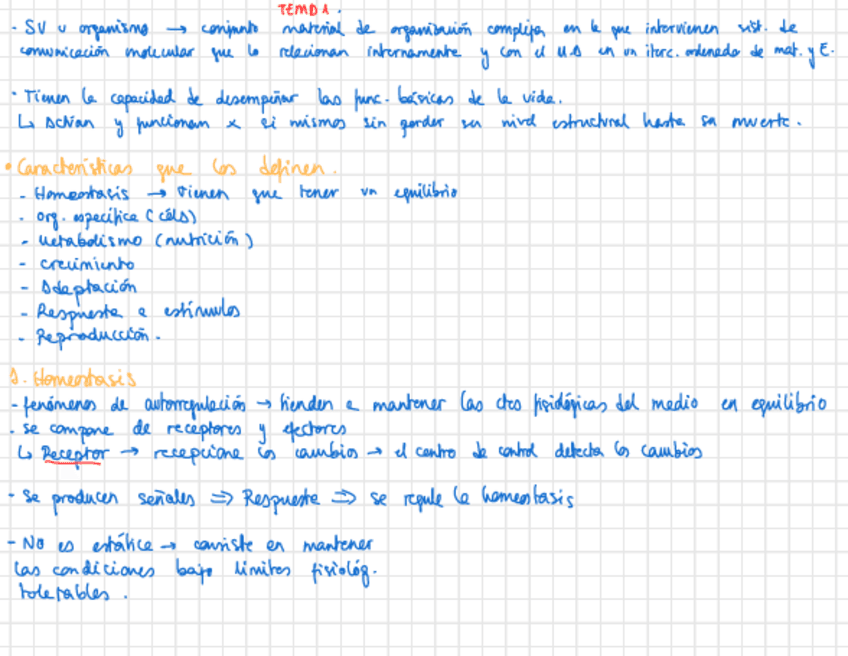 TEMA 1.
- SV u organismo → conjunto material de organización compleja en la que intervienen sist. de
comunicación molecular que lo relacionan internamente y con el MA en un iterc. ordenado de mat. y E.
· Tienen la capacidad de desempeñar las func. básicas de la vida.
↳ Actúan y funcionan x si mismos sin perder su nivel estructural hasta su muerte.
• Características que los definen.
- Homeostasis → tienen que tener un equilibrio
- org. específica (céls)
- Metabolismo (nutrición)
- crecimiento
- Adaptación
- Respuesta a estímulos
- Reproducción.
1. Homeostasis
- fenómenos de autorregulación → tienden a mantener las ctes fisiológicas del medio en equilibrio
- se compone de receptores y efectores
↳ Receptor → recepciona los cambios → el centro de control detecta los cambios
- Se producen señales ⇒ Respuesta ⇒ se regula la homeostasis
- No es estática → consiste en mantener
las condiciones bajo límites fisiológ.
tolerables.